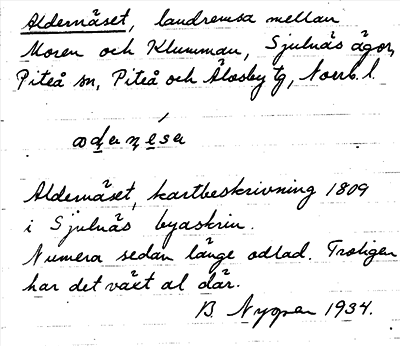 Aldernäset, landremsa mellan
Moren och Klumman, Sjulnäs ägor,
Piteå sn, Piteå och Älvsby tg, Norrb. l.
Aldernäset, kartbeskrivning 1809
i Sjulnäs byaskrin.
Numera sedan länge odlad. Troligen
har det växt al där.
B. Nygren 1934.